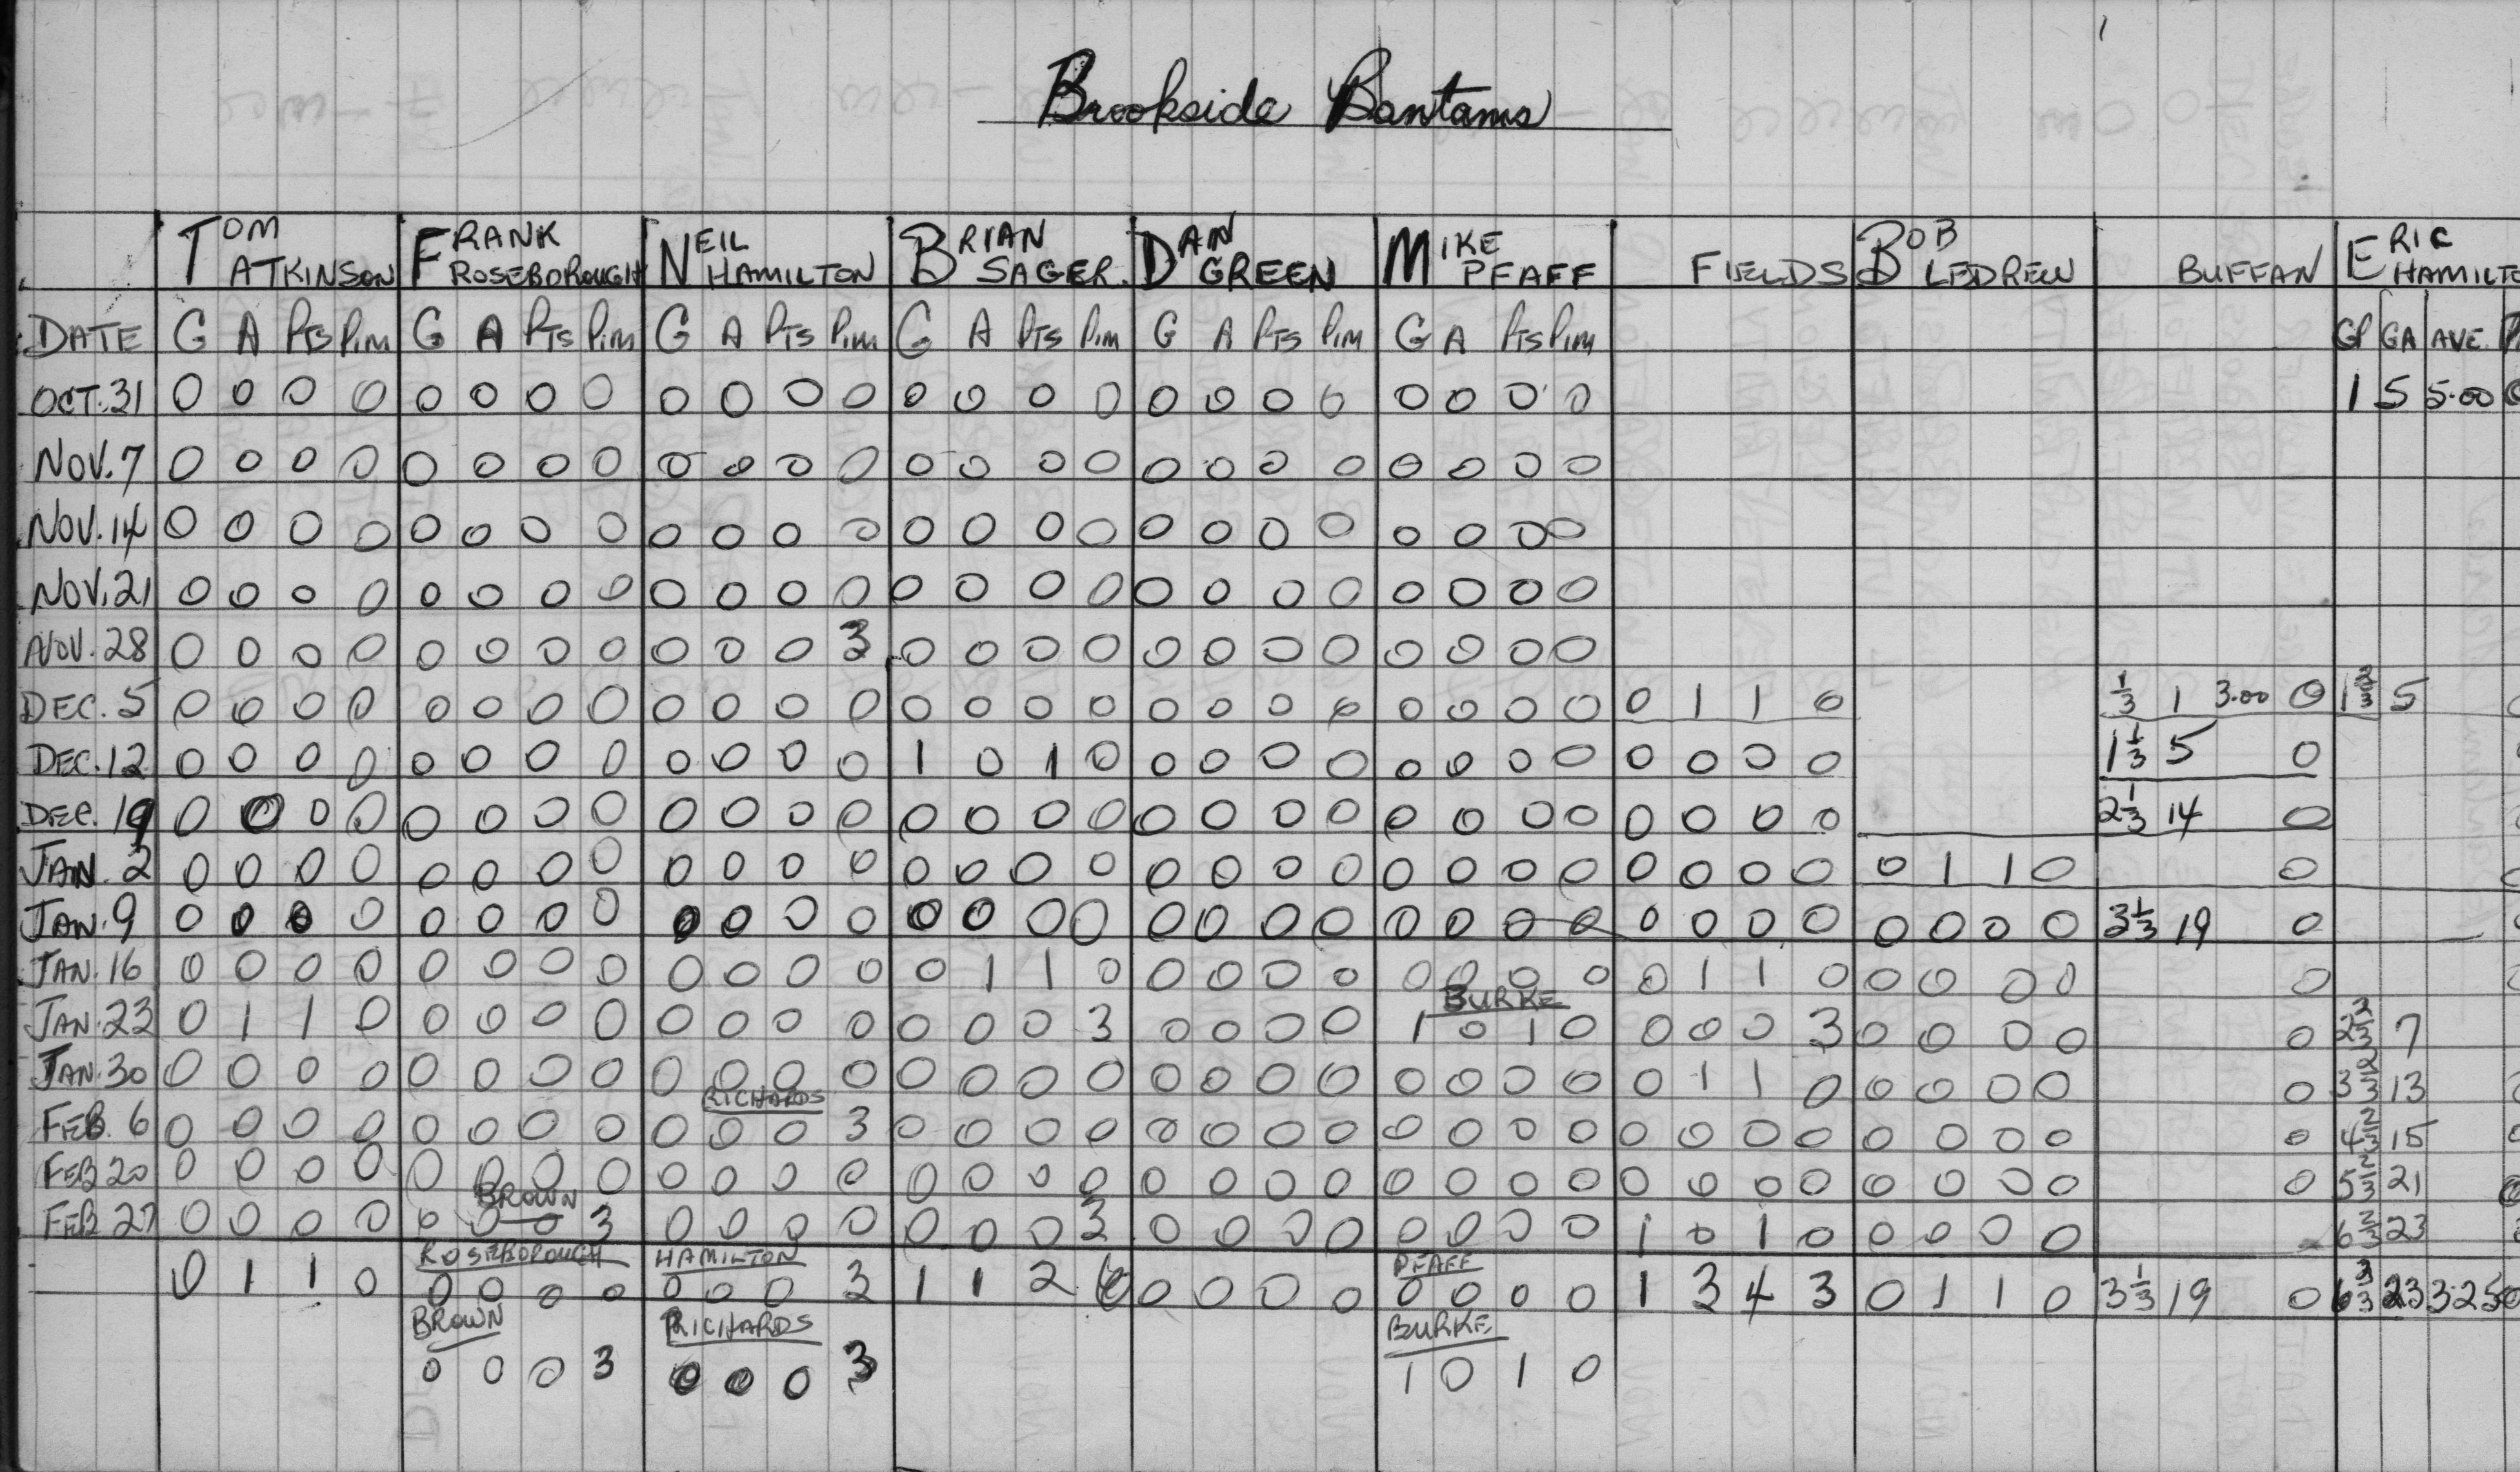 Brookside Bantams
TOM ATKINSON FRANK ROSEBOROUGH NEIL HAMILTON BRIAN SAGER. DAN GREEN MIKE PFAFF FIELDS BOB LEDREW BUFFAN ERIC HAMILTO
DATE G A PTS P.IM G A PTS P.IM G A PTS P.IM G A PTS P.IM G A PTS P.IM G A PTS P.IM GP GA AVE.
OCT. 31 0 0 0 0 0 0 0 0 0 0 0 0 0 0 0 0 0 0 0 0 0 0 0 0 1 5 5.00
NOV. 7 0 0 0 0 0 0 0 0 0 0 0 0 0 0 0 0 0 0 0 0 0 0 0 0
NOV. 14 0 0 0 0 0 0 0 0 0 0 0 0 0 0 0 0 0 0 0 0 0 0 0 0
NOV. 21 0 0 0 0 0 0 0 0 0 0 0 0 0 0 0 0 0 0 0 0 0 0 0 0
NOV. 28 0 0 0 0 0 0 0 0 0 0 0 3 0 0 0 0 0 0 0 0 0 0 0 0
DEC. 5 0 0 0 0 0 0 0 0 0 0 0 0 0 0 0 0 0 0 0 0 0 0 0 0 0 1 1 0 1/3 1 3.00 0 1 2/3 5
DEC. 12 0 0 0 0 0 0 0 0 0 0 0 0 1 0 1 0 0 0 0 0 0 0 0 0 0 0 0 0 1 1/3 5 0
DEC. 19 0 0 0 0 0 0 0 0 0 0 0 0 0 0 0 0 0 0 0 0 0 0 0 0 0 0 0 0 2 1/3 14 0
JAN. 2 0 0 0 0 0 0 0 0 0 0 0 0 0 0 0 0 0 0 0 0 0 0 0 0 0 0 0 0 0 1 1 0 0
JAN. 9 0 0 0 0 0 0 0 0 0 0 0 0 0 0 0 0 0 0 0 0 0 0 0 0 0 0 0 0 0 0 0 0 3 1/3 19 0
JAN. 16 0 0 0 0 0 0 0 0 0 0 0 0 0 1 1 0 0 0 0 0 0 0 0 0 0 1 1 0 0 0 0 0 0
BURKE
JAN. 23 0 1 1 0 0 0 0 0 0 0 0 0 0 0 0 3 0 0 0 0 1 0 1 0 0 0 0 3 0 0 0 0 0 2 2/3 7
JAN. 30 0 0 0 0 0 0 0 0 0 0 0 0 0 0 0 0 0 0 0 0 0 0 0 0 0 1 1 0 0 0 0 0 0 3 2/3 13
RICHARDS
FEB. 6 0 0 0 0 0 0 0 0 0 0 0 3 0 0 0 0 0 0 0 0 0 0 0 0 0 0 0 0 0 0 0 0 0 4 2/3 15
FEB 20 0 0 0 0 0 0 0 0 0 0 0 0 0 0 0 0 0 0 0 0 0 0 0 0 0 0 0 0 0 0 0 0 0 5 2/3 21
BROWN
FEB 27 0 0 0 0 0 0 0 3 0 0 0 0 0 0 0 3 0 0 0 0 0 0 0 0 1 0 1 0 0 0 0 0 6 2/3 23
ROSEBOROUGH HAMILTON PFAFF
0 1 1 0 0 0 0 0 0 0 0 3 1 1 2 6 0 0 0 0 0 0 0 0 1 3 4 3 0 1 1 0 3 1/3 19 0 6 2/3 23 3.25
BROWN RICHARDS BURKE
0 0 0 3 0 0 0 3 1 0 1 0